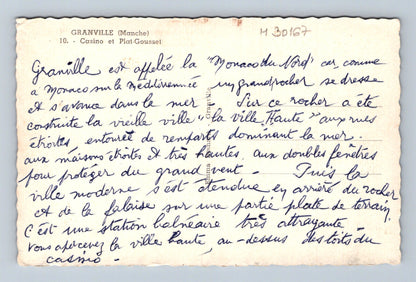 GRANVILLE (Manche)
10. - Casino et Plat-Gousset
M 30167
Granville est appelée la "Monaco du Nord" car comme
à Monaco sur la Méditerranée un grand rocher se dresse
et s'avance dans la mer - Sur ce rocher a été
construite la vieille ville "la ville Haute" aux rues
étroites entourée de remparts dominant la mer.
aux maisons étroites et très hautes aux doubles fenêtres
pour protéger du grand vent - Puis la
ville moderne s'est étendue en arrière du rocher
et de la falaise sur une partie plate de terrain,
C'est une station balnéaire très attrayante -
Vous apercevez la ville haute, au-dessus des toits du
casino -